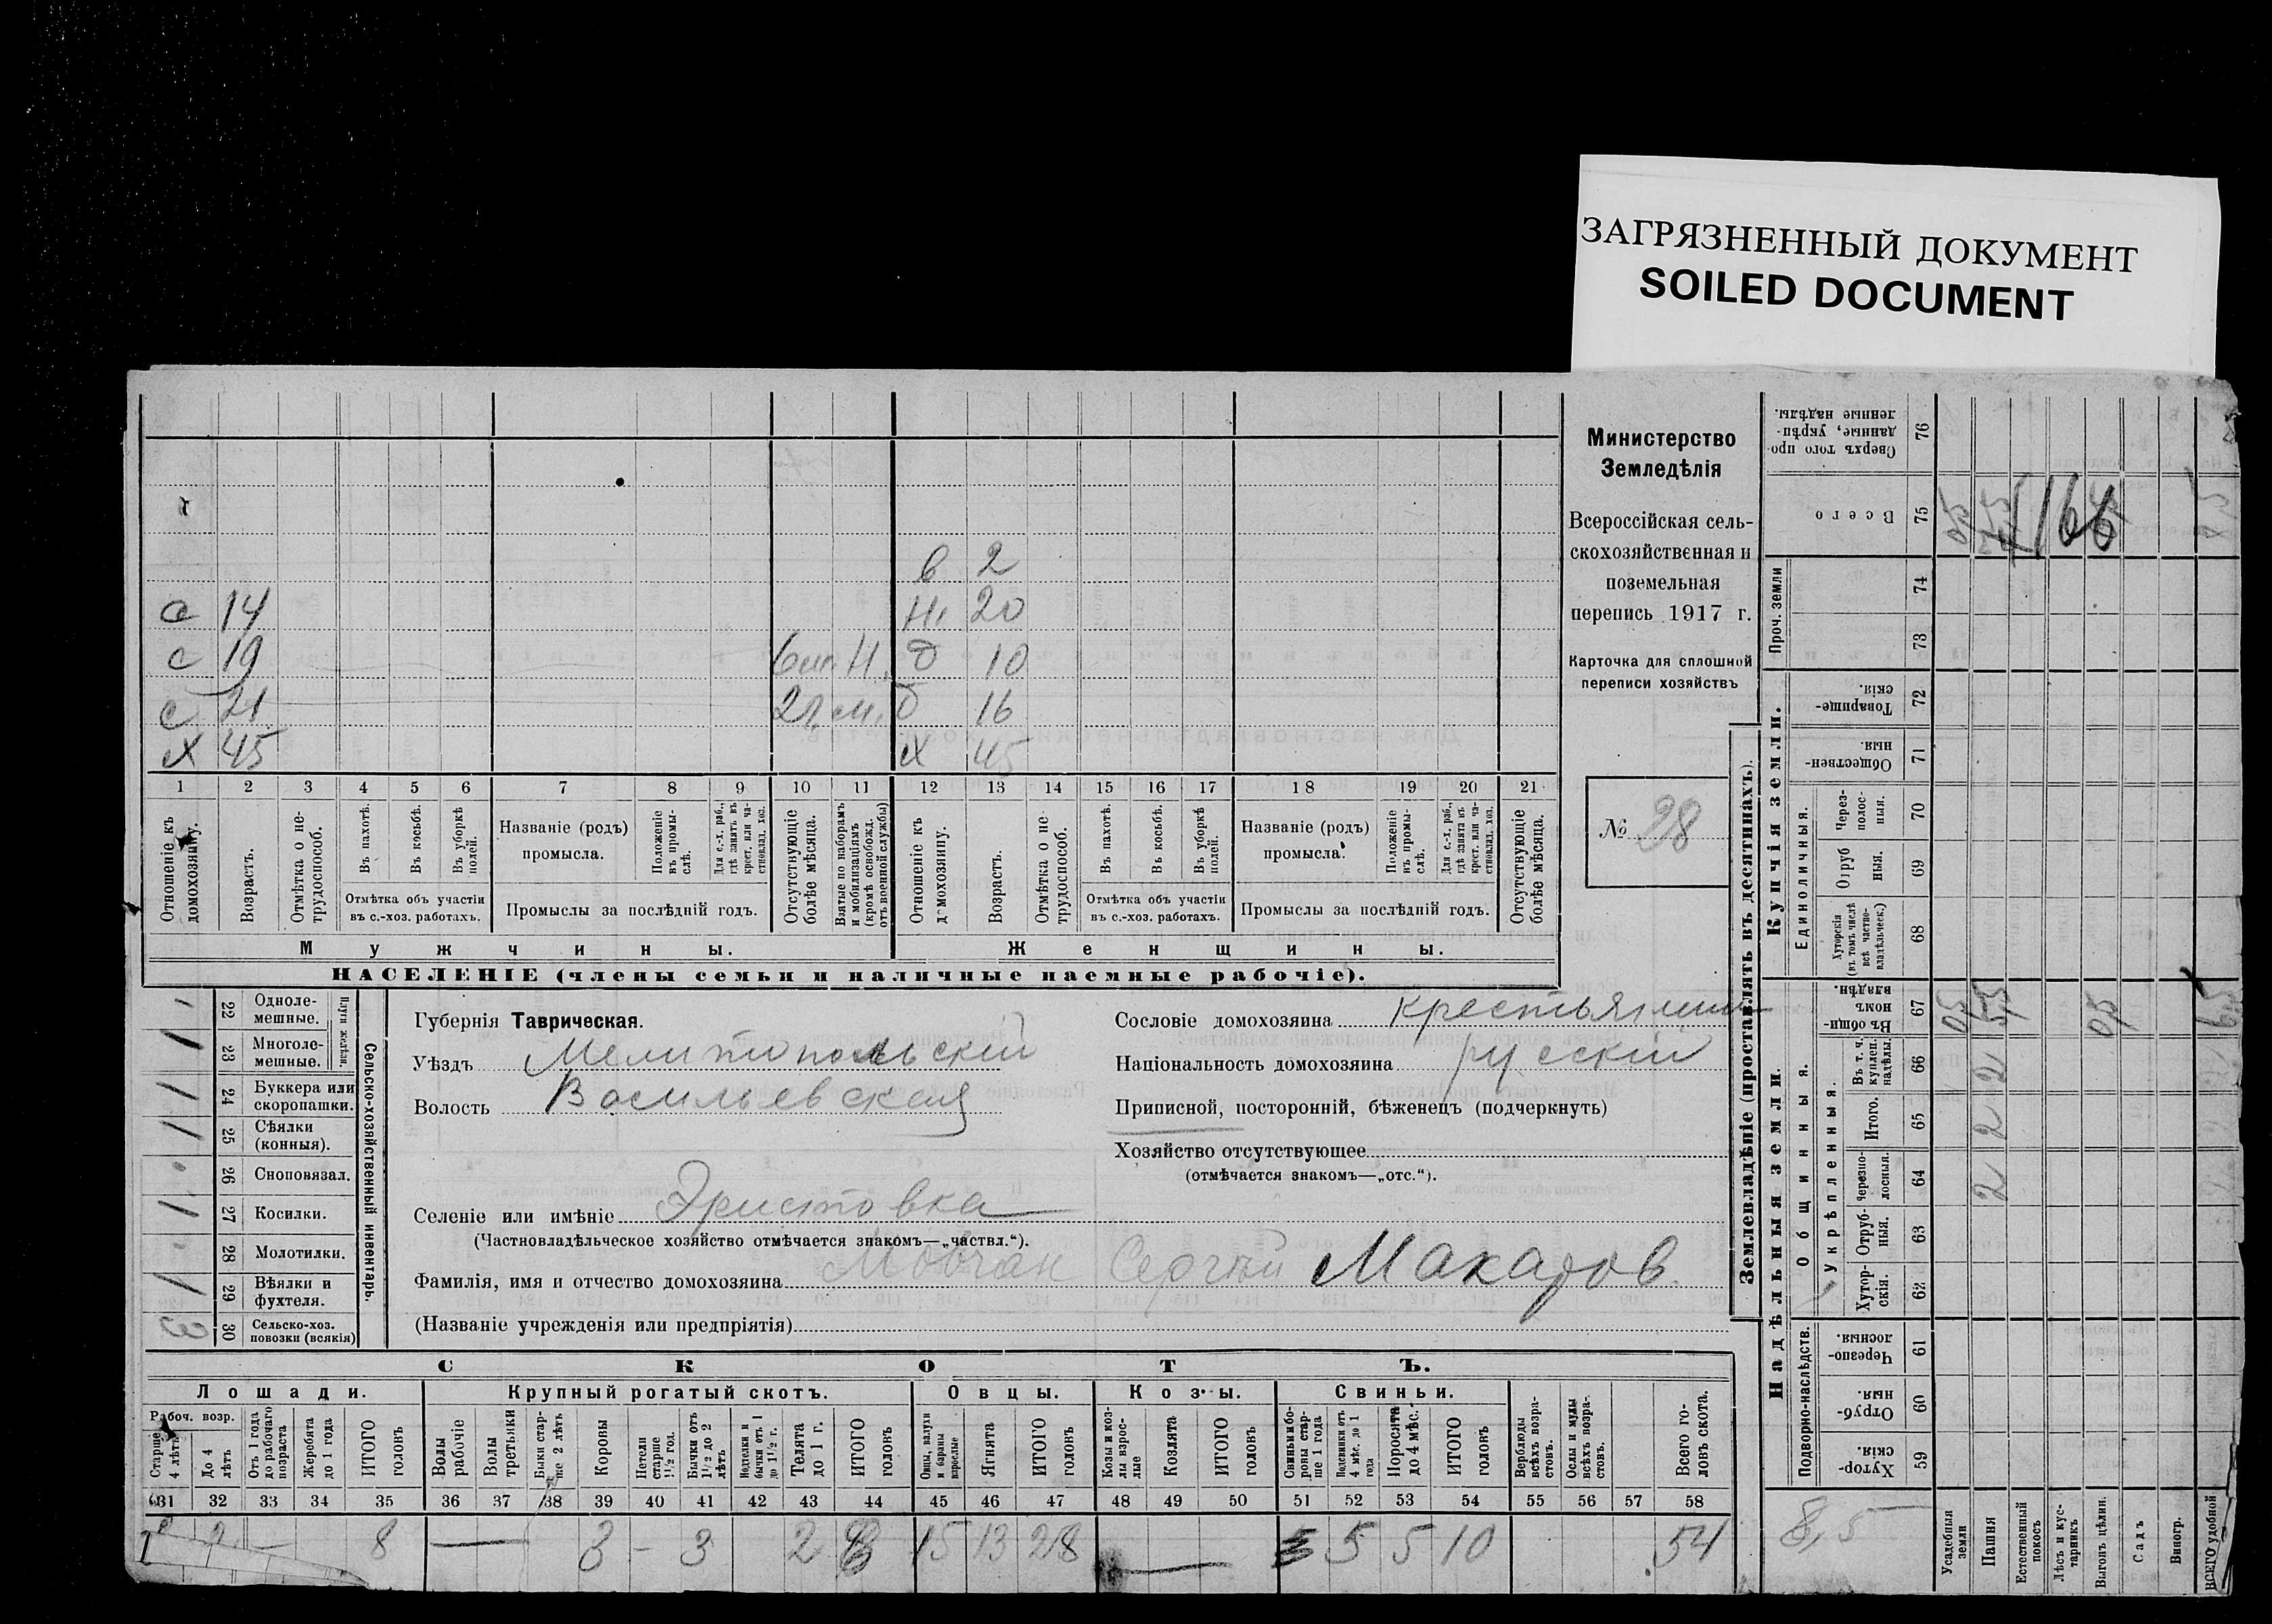 ЗАГРЯЗНЕННЫЙ ДОКУМЕНТ
SOILED DOCUMENT
Министерство
Земледѣлія
Всероссійская сель-
скохозяйственная и
поземельная
перепись 1917 г.
Карточка для сплошной
переписи хозяйствъ
№ 28
в 2
с 14 Н. 20
с 19 6 м. Н. д 10
с 21 2 г. м. д 16
х 45 х 45
1 2 3 4 5 6 7 8 9 10 11 12 13 14 15 16 17 18 19 20 21
Отношеніе къ домохозяину.
Возрастъ.
Отмѣтка о не-трудоспособ.
Въ пахотѣ.
Въ косьбѣ.
Въ уборкѣ полей.
Отмѣтка объ участіи
въ с.-хоз. работахъ.
Названіе (родъ)
промысла.
Положеніе въ промы-слѣ.
Для с.-х. раб., гдѣ занятъ въ крест. или ча-стновлад. хоз.
Промыслы за послѣдній годъ.
Отсутствующіе болѣе мѣсяца.
Взятые по наборамъ и мобилизаціямъ (кромѣ освобожд. отъ военной службы)
Отношеніе къ домохозяину.
Возрастъ.
Отмѣтка о не-трудоспособ.
Въ пахотѣ.
Въ косьбѣ.
Въ уборкѣ полей.
Отмѣтка объ участіи
въ с.-хоз. работахъ.
Названіе (родъ)
промысла.
Положеніе въ промы-слѣ.
Для с.-х. раб., гдѣ занята въ крест. или ча-стновлад. хоз.
Промыслы за послѣдній годъ.
Отсутствующіе болѣе мѣсяца.
Мужчины. Женщины.
НАСЕЛЕНІЕ (члены семьи и наличные наемные рабочіе).
Сельско-хозяйственный инвентарь.
Плуги желѣзн.
22 Одноле-мешные.
1 23 Многоле-мешные.
1 24 Буккера или скоропашки.
1 25 Сѣялки (конныя).
26 Сноповязал.
1 27 Косилки.
28 Молотилки.
1 29 Вѣялки и фухтеля.
3 30 Сельско-хоз. повозки (всякія)
Губернія Таврическая.
Уѣздъ Мелитопольскій
Волость Васильевская
Селеніе или имѣніе Эристовка
(Частновладѣльческое хозяйство отмѣчается знакомъ—„частвл.“).
Фамилія, имя и отчество домохозяина Мовчан Сергѣй Макаров
(Названіе учрежденія или предпріятія)
Сословіе домохозяина крестьянин
Національность домохозяина русскій
Приписной, посторонній, бѣженецъ (подчеркнуть)
Хозяйство отсутствующее
(отмѣчается знакомъ—„отс.“).
СКОТЪ.
Лошади. Крупный рогатый скотъ. Овцы. Козы. Свиньи.
Рабоч. возр.
Старше 4 лѣтъ
До 4 лѣтъ
Отъ 1 года до рабочаго возраста
Жеребята до 1 года
ИТОГО головъ
Волы рабочіе
Волы третьяки
Быки стар-ше 2 лѣтъ
Коровы
Нетели старше 1½ год.
Бычки отъ 1½ до 2 лѣтъ
Подтелки и бычки отъ 1 до 1½ г.
Телята до 1 г.
ИТОГО головъ
Овцы, валухи и бараны взрослые
Ягнята
ИТОГО головъ
Козы и коз-лы взрос-лые
Козлята
ИТОГО головъ
Свиньи и бо-ровы стар-ше 1 года
Подсвинки отъ 4 мѣс. до 1 года
Поросята до 4 мѣс.
ИТОГО головъ
Верблюды всѣхъ возра-стовъ.
Ослы и мулы всѣхъ возра-стовъ.
Всего го-ловъ скота.
31 32 33 34 35 36 37 38 39 40 41 42 43 44 45 46 47 48 49 50 51 52 53 54 55 56 57 58
2 — 8 — 3 – 3 2 8 15 13 28 — 5 5 10 54
Землевладѣніе (проставлять въ десятинахъ).
Купчія земли.
Надѣльныя земли.
Сверхъ того про-данные, укрѣп-ленные надѣлы. 76
Всего 75 0,5 166
Проч. земли 74
73
Товарище-скія. 72
Обществен-ныя. 71
Единоличныя.
Через-полос-ныя. 70
Отруб-ныя. 69
Хуторскія (въ томъ числѣ всѣ частно-владѣльческ.) 68
Общинныя.
Въ общи-номъ владѣн. 67 0,5 5,5 0,5 6,5
Укрѣпленныя.
Въ т. ч. куплен. надѣлы. 66 2
Итого. 65 2
Черезпо-лосныя. 64 2
Отруб-ныя. 63
Хутор-скія. 62
Подворно-наслѣдств.
Черезпо-лосныя. 61
Отруб-ныя. 60
Хутор-скія. 59
8,5
Усадебныя земли
Пашня
Естественный покосъ
Лѣсъ и кус-тарникъ
Выгонъ цѣлин.
Садъ
Виногр.
ВСЕГО удобной